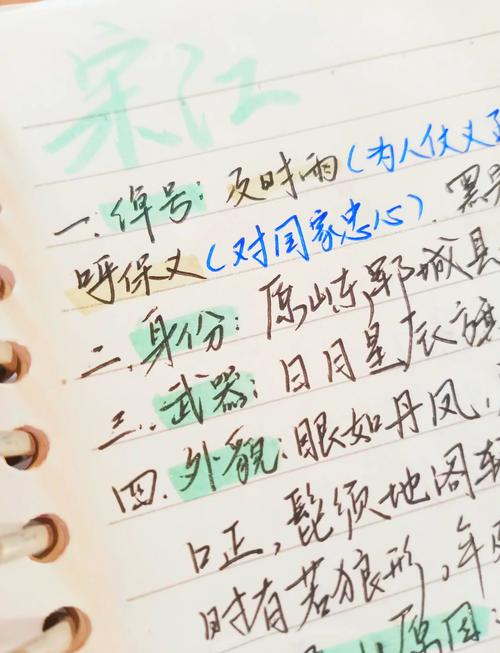 宋江
一.绰号:及时雨(为人仗义
呼保义(对国家忠心).
二.身份:原山东郓城县
三.武器:日月星辰
四.外貌:眼如丹凤,
口正,髭须地阁轻
时有若狼形,年
原因: